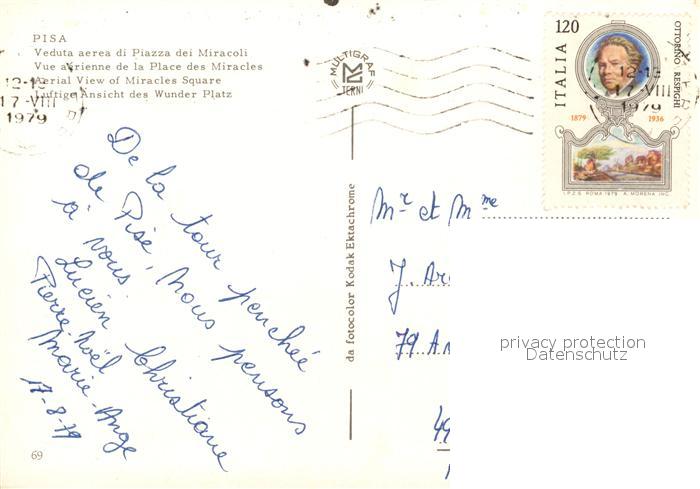 PISA
Veduta aerea di Piazza dei Miracoli
Vue aérienne de la Place des Miracles
Aerial View of Miracles Square
Luftige Ansicht des Wunder Platz
12-13
17-VIII
1979
MULTIGRAF
TERNI
120
ITALIA
OTTORINO RESPIGHI
12-13
17-VIII
1979
1879 1936
I.P.Z.S. ROMA 1979 A. MORENA INC.
De la tour penchée
de Pise, nous pensons
à vous
Lucien Christiane
Pierre-Noël
Marie-Ange
17-8-79
69
da fotocolor Kodak Ektachrome
Mr et Mme
J.
79
49
privacy protection
Datenschutz